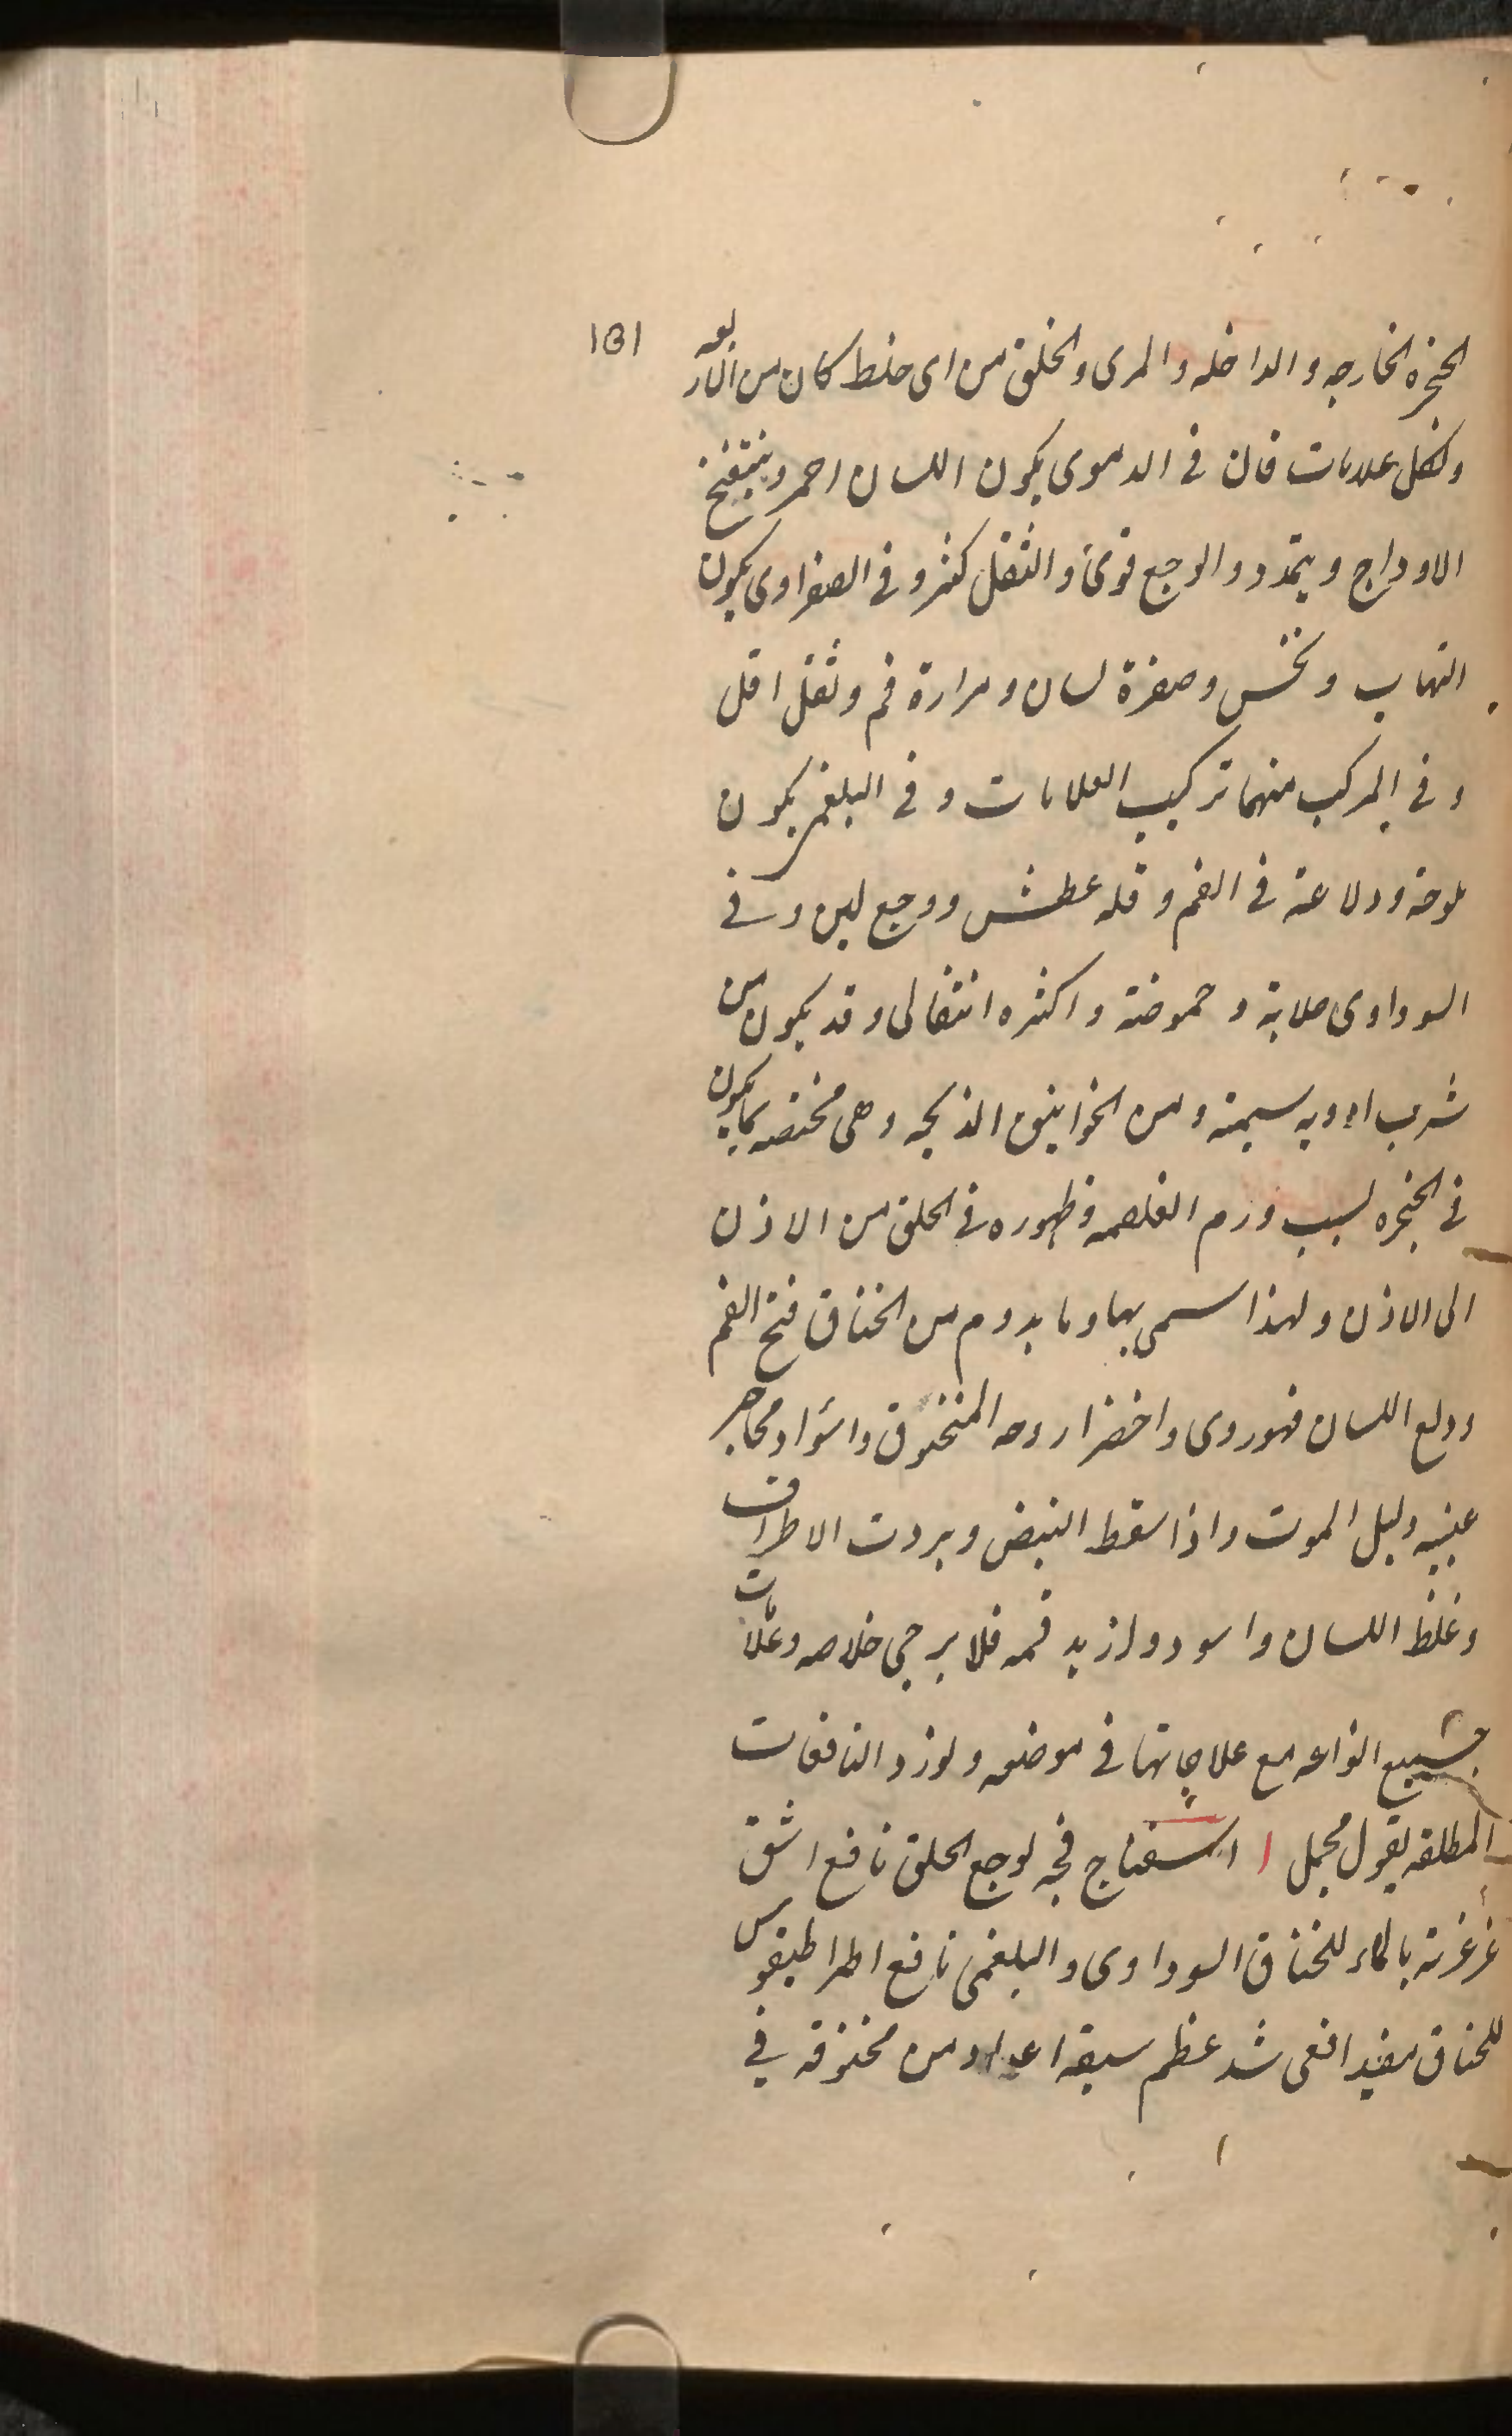 ١٥١
الحنجره الخارجه و الداخله و المرى و الحلق من اى خلط كان من الاربعه
ولكل علامات فان فى الدموى يكون اللسان احمر و ينتفخ
الاوداج و يتمدد و الوجع قوى و الثقل كثر و فى الصفراوى يكون
التهاب و نخس و صفرة لسان و مرارة فم و ثقل اقل
و فى المركب منهما تركيب العلامات و فى البلغمى يكون
ملوحة و دلاعة فى الفم و قله عطش و وجع لين و فى
السوداوى صلابة و حموضة و اكثره انتقالى و قد يكون من
شرب ادويه سمية و من الخوانيق الذبحه و هى مختصه بما يكون
فى الحنجره لسبب ورم الغلصمه و ظهوره فى الحلق من الاذن
الى الاذن و لهذا سمى بها و ما يدوم من الخناق فتح الفم
و دلع اللسان فهو روى و اخضرار وجه المنخنوق و اسواد محاجر
عينيه دليل الموت و اذا سقط النبض و بردت الاطراف
و غلظ اللسان و اسود و ازبد فمه فلا يرجى خلاصه و علامات
جميع انواعه مع علاجاتها فى موضعه و لوزد النافعات
المطلقه بقول مجمل ا اسفناج فجه لوجع الحلق نافع اشق
غرغرته بالماء للخناق السوداوى و البلغمى نافع اطراطيقوس
للخناق مفيد افعى شد عظم من مخنوقه فى